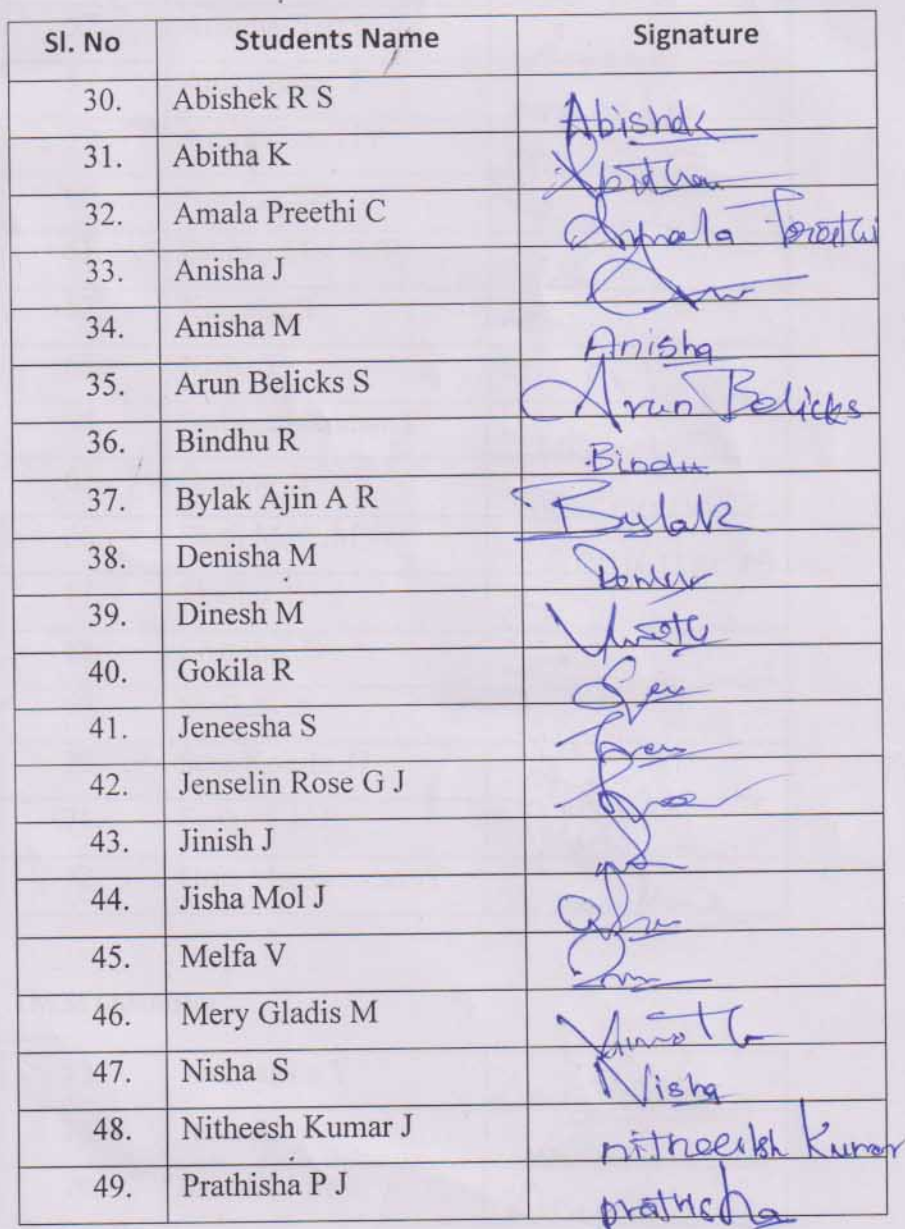 Sl. No Students Name Signature
30. Abishek R S Abishek
31. Abitha K
32. Amala Preethi C Amala Preethi
33. Anisha J
34. Anisha M Anisha
35. Arun Belicks S Arun Belicks
36. Bindhu R Bindu
37. Bylak Ajin A R Bylak
38. Denisha M
39. Dinesh M
40. Gokila R
41. Jeneesha S
42. Jenselin Rose G J
43. Jinish J
44. Jisha Mol J
45. Melfa V
46. Mery Gladis M
47. Nisha S Nisha
48. Nitheesh Kumar J Kumar
49. Prathisha P J